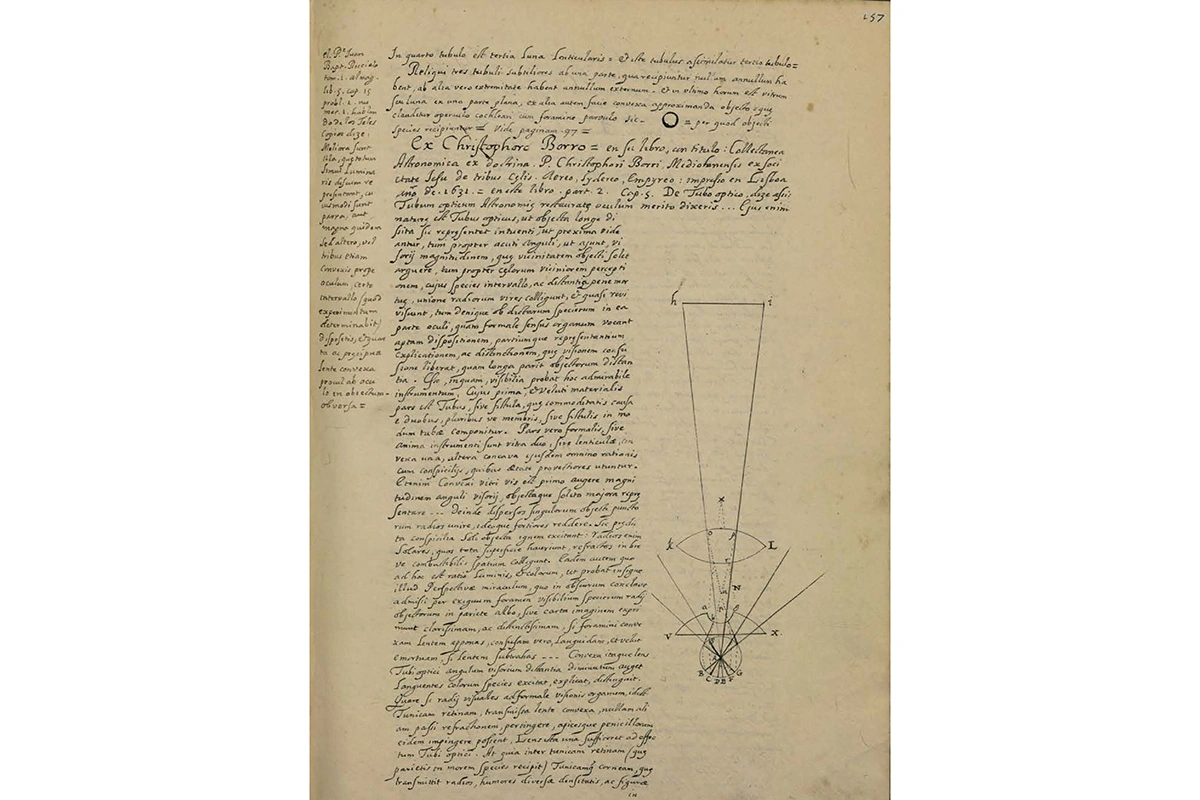 157
el P.e Juan
Bapt. Ricciolo
tom. 1. almag.
lib. 3. cap. 15
probl. 2. nu
mer. 1. hablan
do de los Teles
copios dize:
Meliora sunt
illa, quę totum
simul Lumina
ris discum re
presentent, cu
iusmodi sunt
parva, aut
magna quidem
sed altero, vel
tribus etiam
convexis prope
oculum certo
intervallo (quod
experimentum
determinabit)
dispositis, et
ta ac pręcipua
lente convexa
procul ab ocu
lo in obiectum
obversa =
In quarto tubulo est tertia Luna Lenticularis = et iste tubulus assimilatur tertio tubulo =
Reliqui tres tubuli subtiliores ab una parte, qua recipiuntur nullum annullum ha
bent, ab alia vero extremitate habent annullum externum. et in ultimo horum est vitrum
sive luna ex una parte plana, ex alia autem facie convexa approximanda objecto cujus
clauditur operculo cochleari cum foramine parvulo sic - = per quod objecti
species recipiuntur = Vide paginam 97 =
Ex Christophoro Borro = en su libro, con titulo: Collectanea
Astronomica ex doctrina. P. Christophori Borri, Mediolanensis ex Soci
etate Iesu de tribus Cęlis. Aereo, Sydereo, Empyreo: impresso en Lisboa
año de. 1631. = en este libro. part. 2. Cap. 5. De Tubo optico, dize assi:
Tubum opticum Astronomię restauratę oculum merito dixeris... Ejus enim
naturę est Tubus opticus, ut objecta longe di
ssita sic repręsentet intuenti, ut proxima vide
antur, tum propter acuti anguli, ut ajunt, vi
sorij magnitudinem, quę vicinitatem objecti solet
arguere, tum propter colorum viciniorem percepti
onem, cujus species intervallo, ac distantia pene mor
tuę, unione radiorum vires colligunt, et quasi revi
viscunt, tum denique ob distarum specierum in ea
parte oculi, quam formale sensus organum vocant
aptam dispositionem, partiumque repręsentantium
explicationem, ac distinctionem, quę visionem confu
sione liberat, quam longa parit objectorum distan
tia. Esse, inquam, visibilia probat hoc admirabile
instrumentum. Cujus prima, et veluti materialis
pars est Tubus, sive fistula, quę commoditatis causa
e duobus, pluribus ve membris, sive fistulis in mo
dum tubæ componitur. Pars vero formalis, sive
anima instrumenti sunt vitra duo, sive lenticulæ, con
vexa una, altera concava ejusdem omnino rationis
cum conspicilijs, quibus ætate provectiores utuntur.
Etenim Convexi vitri vis est primo augere magni
tudinem anguli visorij, objectaque solito majora reprę
sentare --- Deinde dispersos singulorum objecti puncto
rum radios unire, ideoque fortiores reddere. Sic
ta conspicilia Soli objecta ignem excitant: radios enim
Solares, quos tota superficie hauriunt, refractos in bre
ve combustibili spatium colligunt. Eadem autem quo
ad hoc est ratio luminis, et colorum, ut probat insigne
illud Perspectivæ miraculum, quo in obscurum conclave
admissi per exiguum foramen visibilium specierum radij
objectorum in pariete albo, sive carta imaginem expri
munt clarissimam, ac distinctissimam, si foramini conve
xam lentem apponas, confusam vero, languidam, et velut
emortuam, si lentem subtrahas --- Convexa itaque lens
Tubi optici angulum visorium distantia diminutum auget
Languentes colorum species excitat, explicat, distinguit.
Quare si radij visuales ad formale visionis organum, idest
Tunicam retinam, transmissa lente convexa, nullam ali
am passi refractionem, pertingere, apicesque penicillorum
eidem impingere possent, Lens ista una sufficeret ad effec
tum Tubi optici. At quia inter tunicam retinam (quę
parietis in morem species recipit) Tunicamq. corneam, quę
transmittit radios, humores diversæ densitatis, ac figuræ
in
h i
x
o p
k L
r
N
v x
B C D E F G